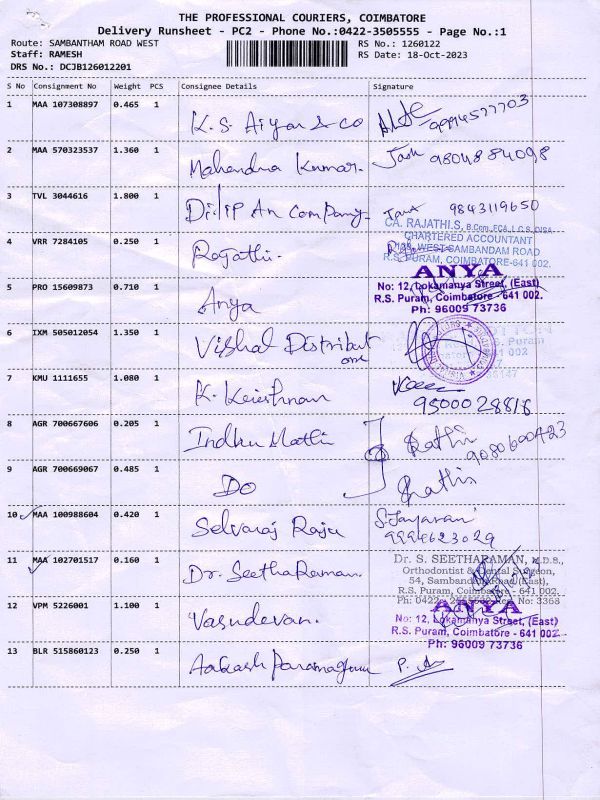 THE PROFESSIONAL COURIERS, COIMBATORE
Delivery Runsheet - PC2 - Phone No.:0422-3505555 - Page No.:1
Route: SAMBANTHAM ROAD WEST RS No.: 1260122
Staff: RAMESH RS Date: 18-Oct-2023
DRS No.: DCJB126012201
S No Consignment No Weight PCS Consignee Details Signature
1 MAA 107308897 0.465 1 K.S. Aiyar & co 9994577703
2 MAA 570323537 1.360 1 Mahendra Kumar. 9804884098
3 TVL 3044616 1.800 1 Dilip An Company 9843119650
CA. RAJATHI.S, B.Com, FCA, I.C.S, DISA
CHARTERED ACCOUNTANT
WEST SAMBANDAM ROAD
R.S. PURAM, COIMBATORE-641 002.
4 VRR 7284105 0.250 1 Rajathi.
5 PRO 15609873 0.710 1 Anya
ANYA
No: 12, Lokamanya Street, (East)
R.S. Puram, Coimbatore - 641 002.
Ph: 96009 73736
6 IXM 505012054 1.350 1 Vishal Distribut
7 KMU 1111655 1.080 1 K. Krishnan
9500028816
8 AGR 700667606 0.205 1 Indhu Mathi Rathi 9080600423
9 AGR 700669067 0.485 1 Do Rathi
10 MAA 100988604 0.420 1 Selvaraj Raju S. Jayaran
9994623029
11 MAA 102701517 0.160 1 Dr. Seetha Raman.
Dr. S. SEETHARAMAN, M.D.S.,
Orthodontist & Dental Surgeon,
54, Sambandam Road (East),
R.S. Puram, Coimbatore - 641 002.
Ph: 0422 No: 3368
12 VPM 5226001 1.100 1 Vasudevan.
ANYA
No: 12, Lokamanya Street, (East)
R.S. Puram, Coimbatore - 641 002.
Ph: 96009 73736
13 BLR 515860123 0.250 1 Aakash Paramaguru P. A